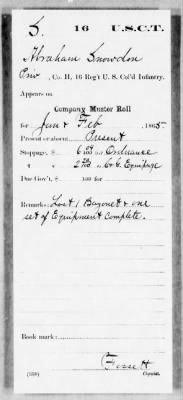 S. 16 U.S.C.T.
Abraham Snowdon
Priv, Co. H, 16 Reg't U. S. Col'd Infantry.
Appears on
Company Muster Roll
for Jan & Feb, 1865
Present or absent Present
Stoppage, $ 6 100 for Ordnance
" " 2 " C & G. Equipage
Due Gov't, $ 100 for
Remarks: Lost 1 Bayonett & one
set of Equipment Complete.
Book mark:
(358)
Copyist.